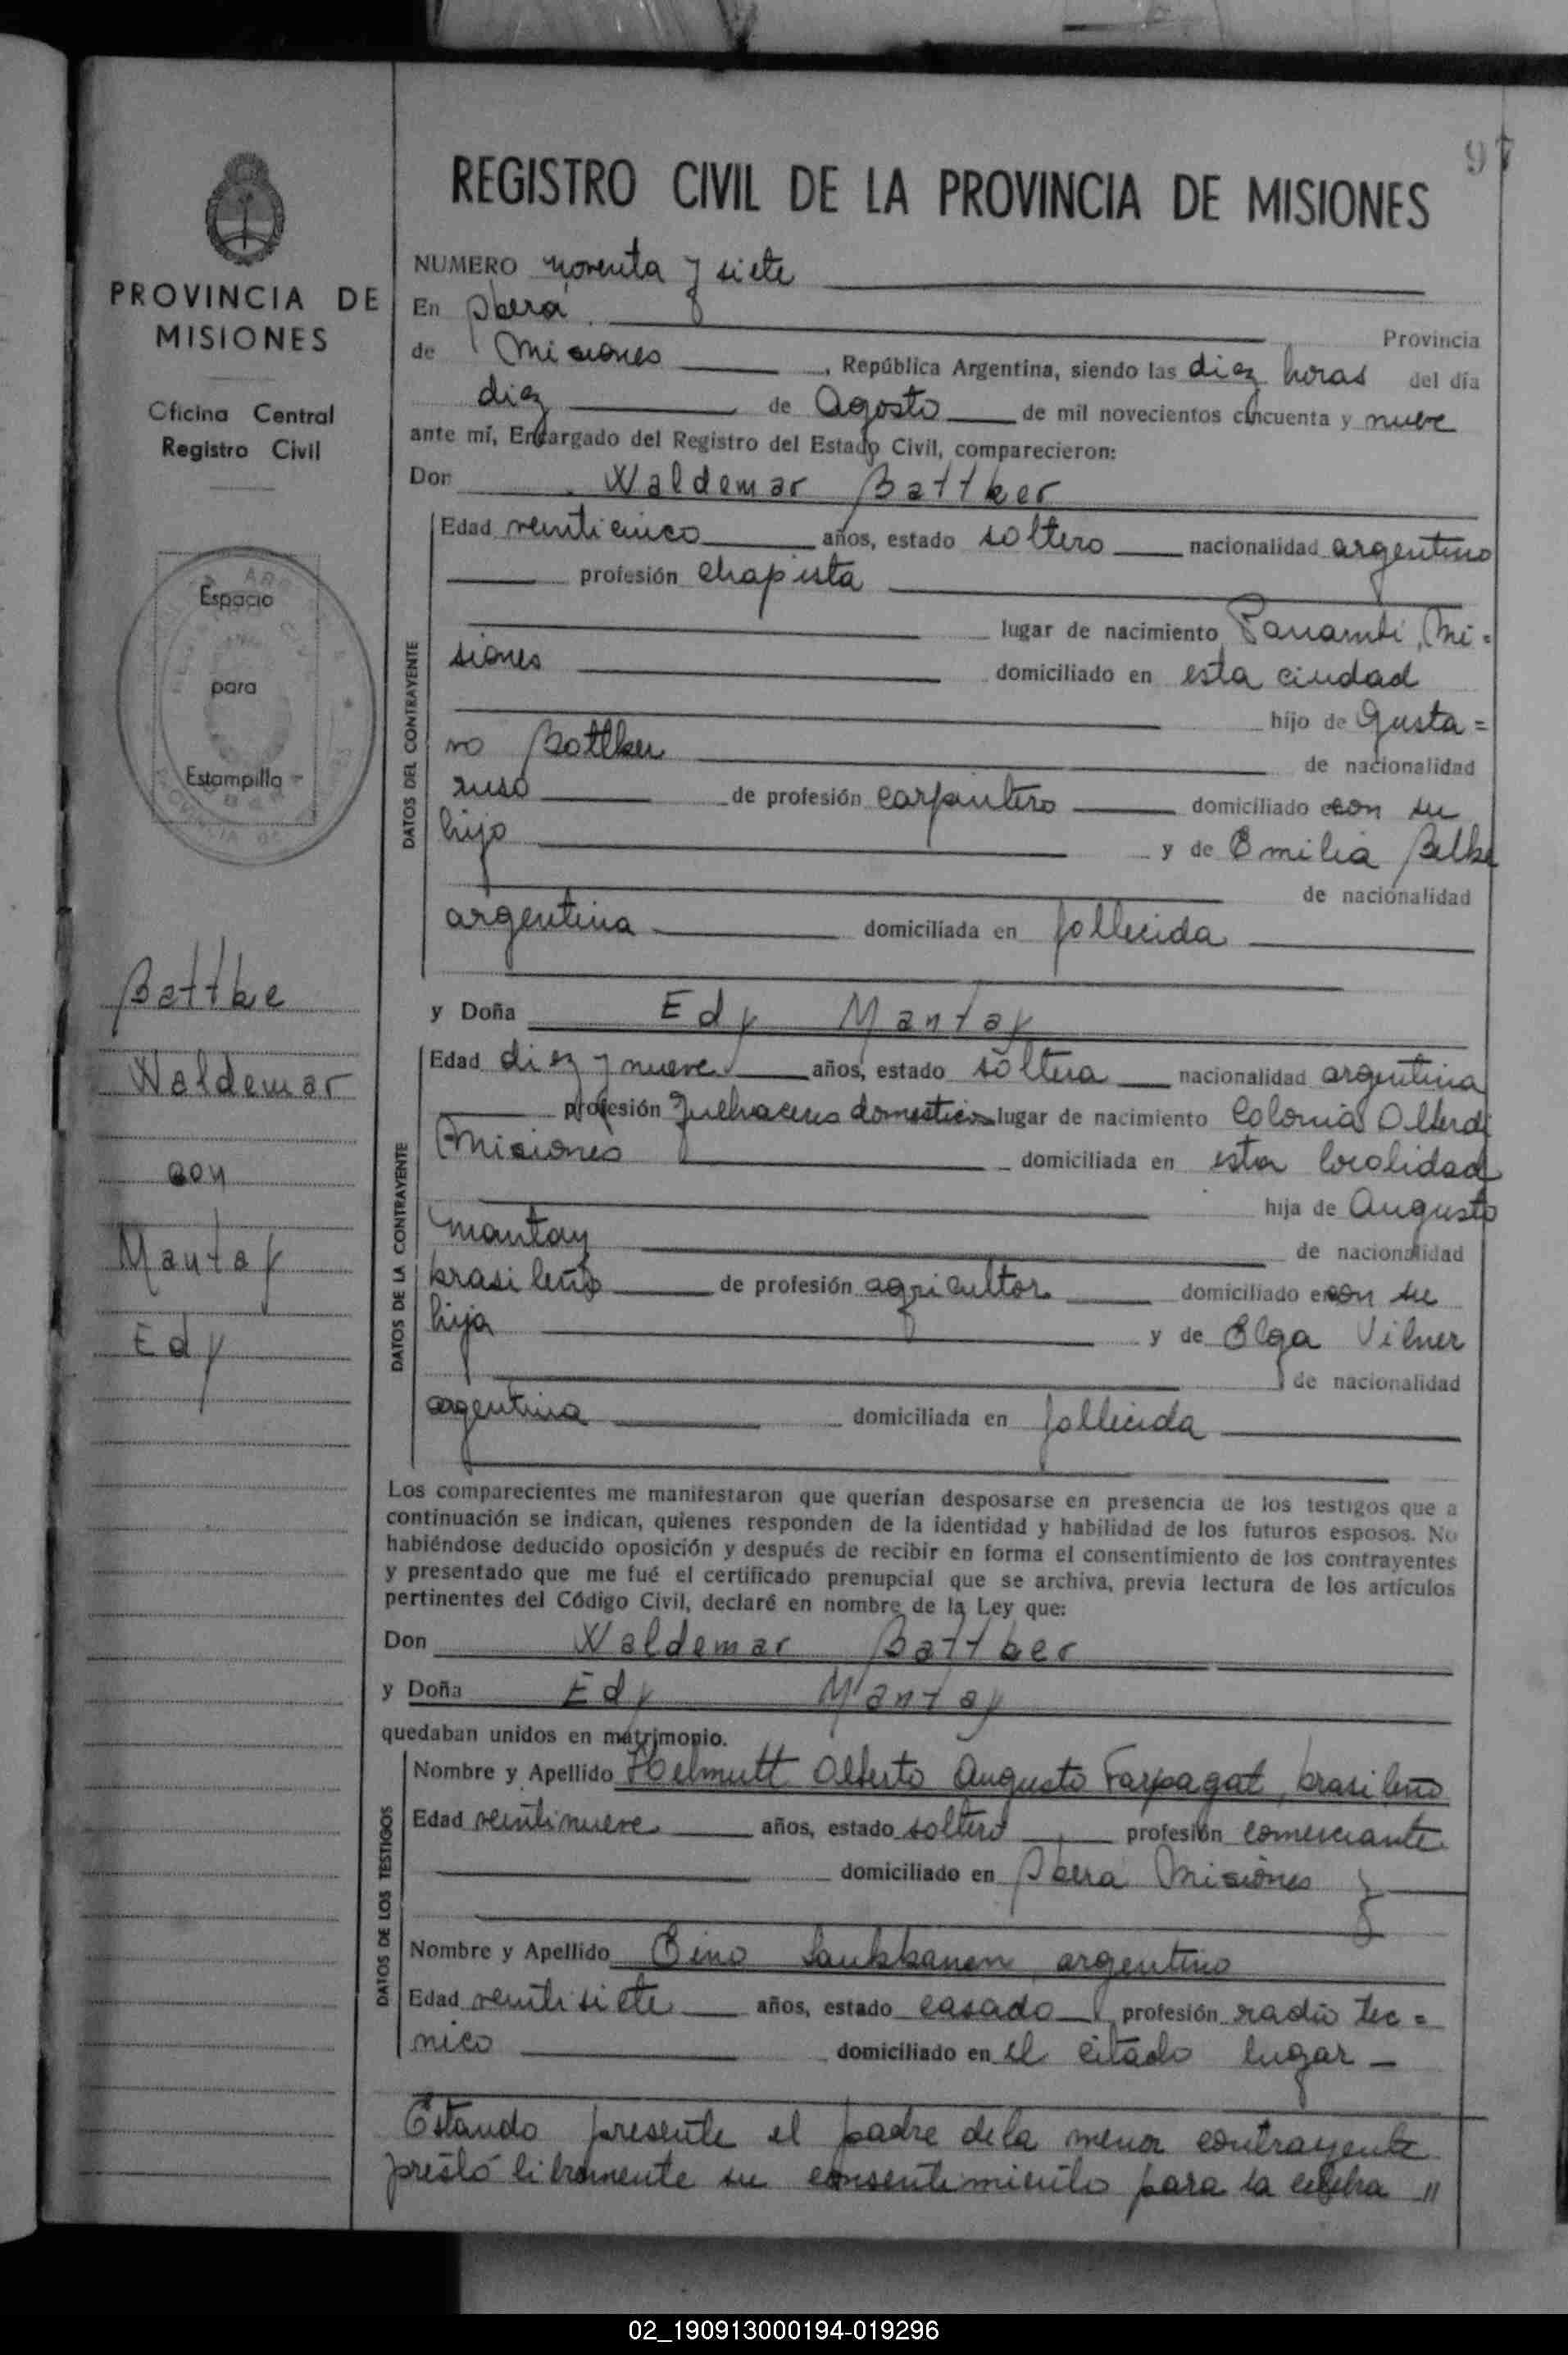 97
REGISTRO CIVIL DE LA PROVINCIA DE MISIONES
PROVINCIA DE
MISIONES
Oficina Central
Registro Civil
Espacio
para
Estampilla
Battke
Waldemar
con
Mantay
Edy
NUMERO noventa y siete
En Oberá Provincia
de Misiones, República Argentina, siendo las diez horas del día
diez de Agosto de mil novecientos cincuenta y nueve
ante mí, Encargado del Registro del Estado Civil, comparecieron:
Don Waldemar Battker
DATOS DEL CONTRAYENTE
Edad veinticinco años, estado soltero nacionalidad argentino
profesión chapista
lugar de nacimiento Panambi, Mi=
siones domiciliado en esta ciudad
hijo de Gusta=
vo Battker de nacionalidad
ruso de profesión carpintero domiciliado con su
hijo y de Emilia
de nacionalidad
argentina domiciliada en fallecida
y Doña Edy Mantay
DATOS DE LA CONTRAYENTE
Edad diez y nueve años, estado soltera nacionalidad argentina
profesión quehaceres domesticos lugar de nacimiento Colonia Alberdi
Misiones domiciliada en esta localidad
hija de Augusto
Mantay de nacionalidad
brasileño de profesión agricultor domiciliado con su
hija y de Olga Vilner
de nacionalidad
argentina domiciliada en fallecida
Los comparecientes me manifestaron que querían desposarse en presencia de los testigos que a
continuación se indican, quienes responden de la identidad y habilidad de los futuros esposos. No
habiéndose deducido oposición y después de recibir en forma el consentimiento de los contrayentes
y presentado que me fué el certificado prenupcial que se archiva, previa lectura de los artículos
pertinentes del Código Civil, declaré en nombre de la Ley que:
Don Waldemar Battker
y Doña Edy Mantay
quedaban unidos en matrimonio.
DATOS DE LOS TESTIGOS
Nombre y Apellido Helmutt Alberto Augusto Farpagat, brasileño
Edad veintinueve años, estado soltero profesión comerciante
domiciliado en Obera Misiones y
Nombre y Apellido Eino Saukkanen argentino
Edad veintisiete años, estado casado profesión radio tec=
nico domiciliado en el citado lugar
Estando presente el padre de la menor contrayente
prestó libremente su consentimiento para la celebra "
02_190913000194-019296